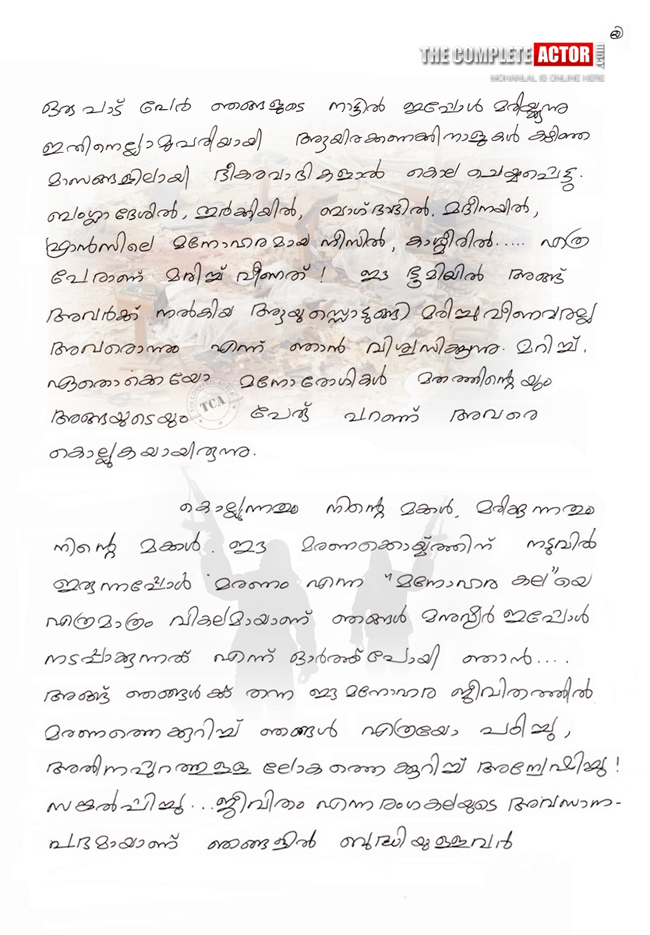 THE COMPLETE ACTOR
MOHANLAL IS ONLINE HERE
ഒരുപാട് പേർ ഞങ്ങളുടെ നാട്ടിൽ ഇപ്പോൾ മരിയ്ക്കുന്നു
ഇതിനെല്ലാമുപരിയായി ആയിരക്കണക്കിനാളുകൾ കഴിഞ്ഞ
മാസങ്ങളിലായി ഭീകരവാദികളാൽ കൊല ചെയ്യപ്പെട്ടു.
ബംഗ്ലാദേശിൽ, തുർക്കിയിൽ, ബാഗ്ദാദിൽ, മദീനയിൽ,
ഫ്രാൻസിലെ മനോഹരമായ നീസിൽ, കാശ്മീരിൽ..... എത്ര
പേരാണ് മരിച്ച് വീണത്! ഈ ഭൂമിയിൽ അങ്ങ്
അവർക്ക് നൽകിയ ആയുസ്സൊടുങ്ങി മരിച്ചുവീണവരല്ല
അവരൊന്നും എന്ന് ഞാൻ വിശ്വസിക്കുന്നു. മറിച്ച്,
ഏതൊക്കെയോ മനോരോഗികൾ മതത്തിന്റെയും
അങ്ങയുടെയും പേര് പറഞ്ഞ് അവരെ
കൊല്ലുകയായിരുന്നു.
TCA
കൊല്ലുന്നതും നിന്റെ മക്കൾ, മരിക്കുന്നതും
നിന്റെ മക്കൾ. ഈ മരണക്കൊയ്ത്തിന് നടുവിൽ
ഇരുന്നപ്പോൾ മരണം എന്ന "മനോഹര കല"യെ
എത്രമാത്രം വികലമായാണ് ഞങ്ങൾ മനുഷ്യർ ഇപ്പോൾ
നടപ്പാക്കുന്നത് എന്ന് ഓർത്ത്പോയി ഞാൻ....
അങ്ങ് ഞങ്ങൾക്ക് തന്ന ഈ മനോഹര ജീവിതത്തിൽ
മരണത്തെക്കുറിച്ച് ഞങ്ങൾ എത്രയോ പഠിച്ചു,
അതിനപ്പുറത്തുള്ള ലോകത്തെക്കുറിച്ച് അന്വേഷിച്ചു!
സങ്കൽപ്പിച്ചു... ജീവിതം എന്ന രംഗകലയുടെ അവസാന-
പദമായാണ് ഞങ്ങളിൽ ബുദ്ധിയുള്ളവർ